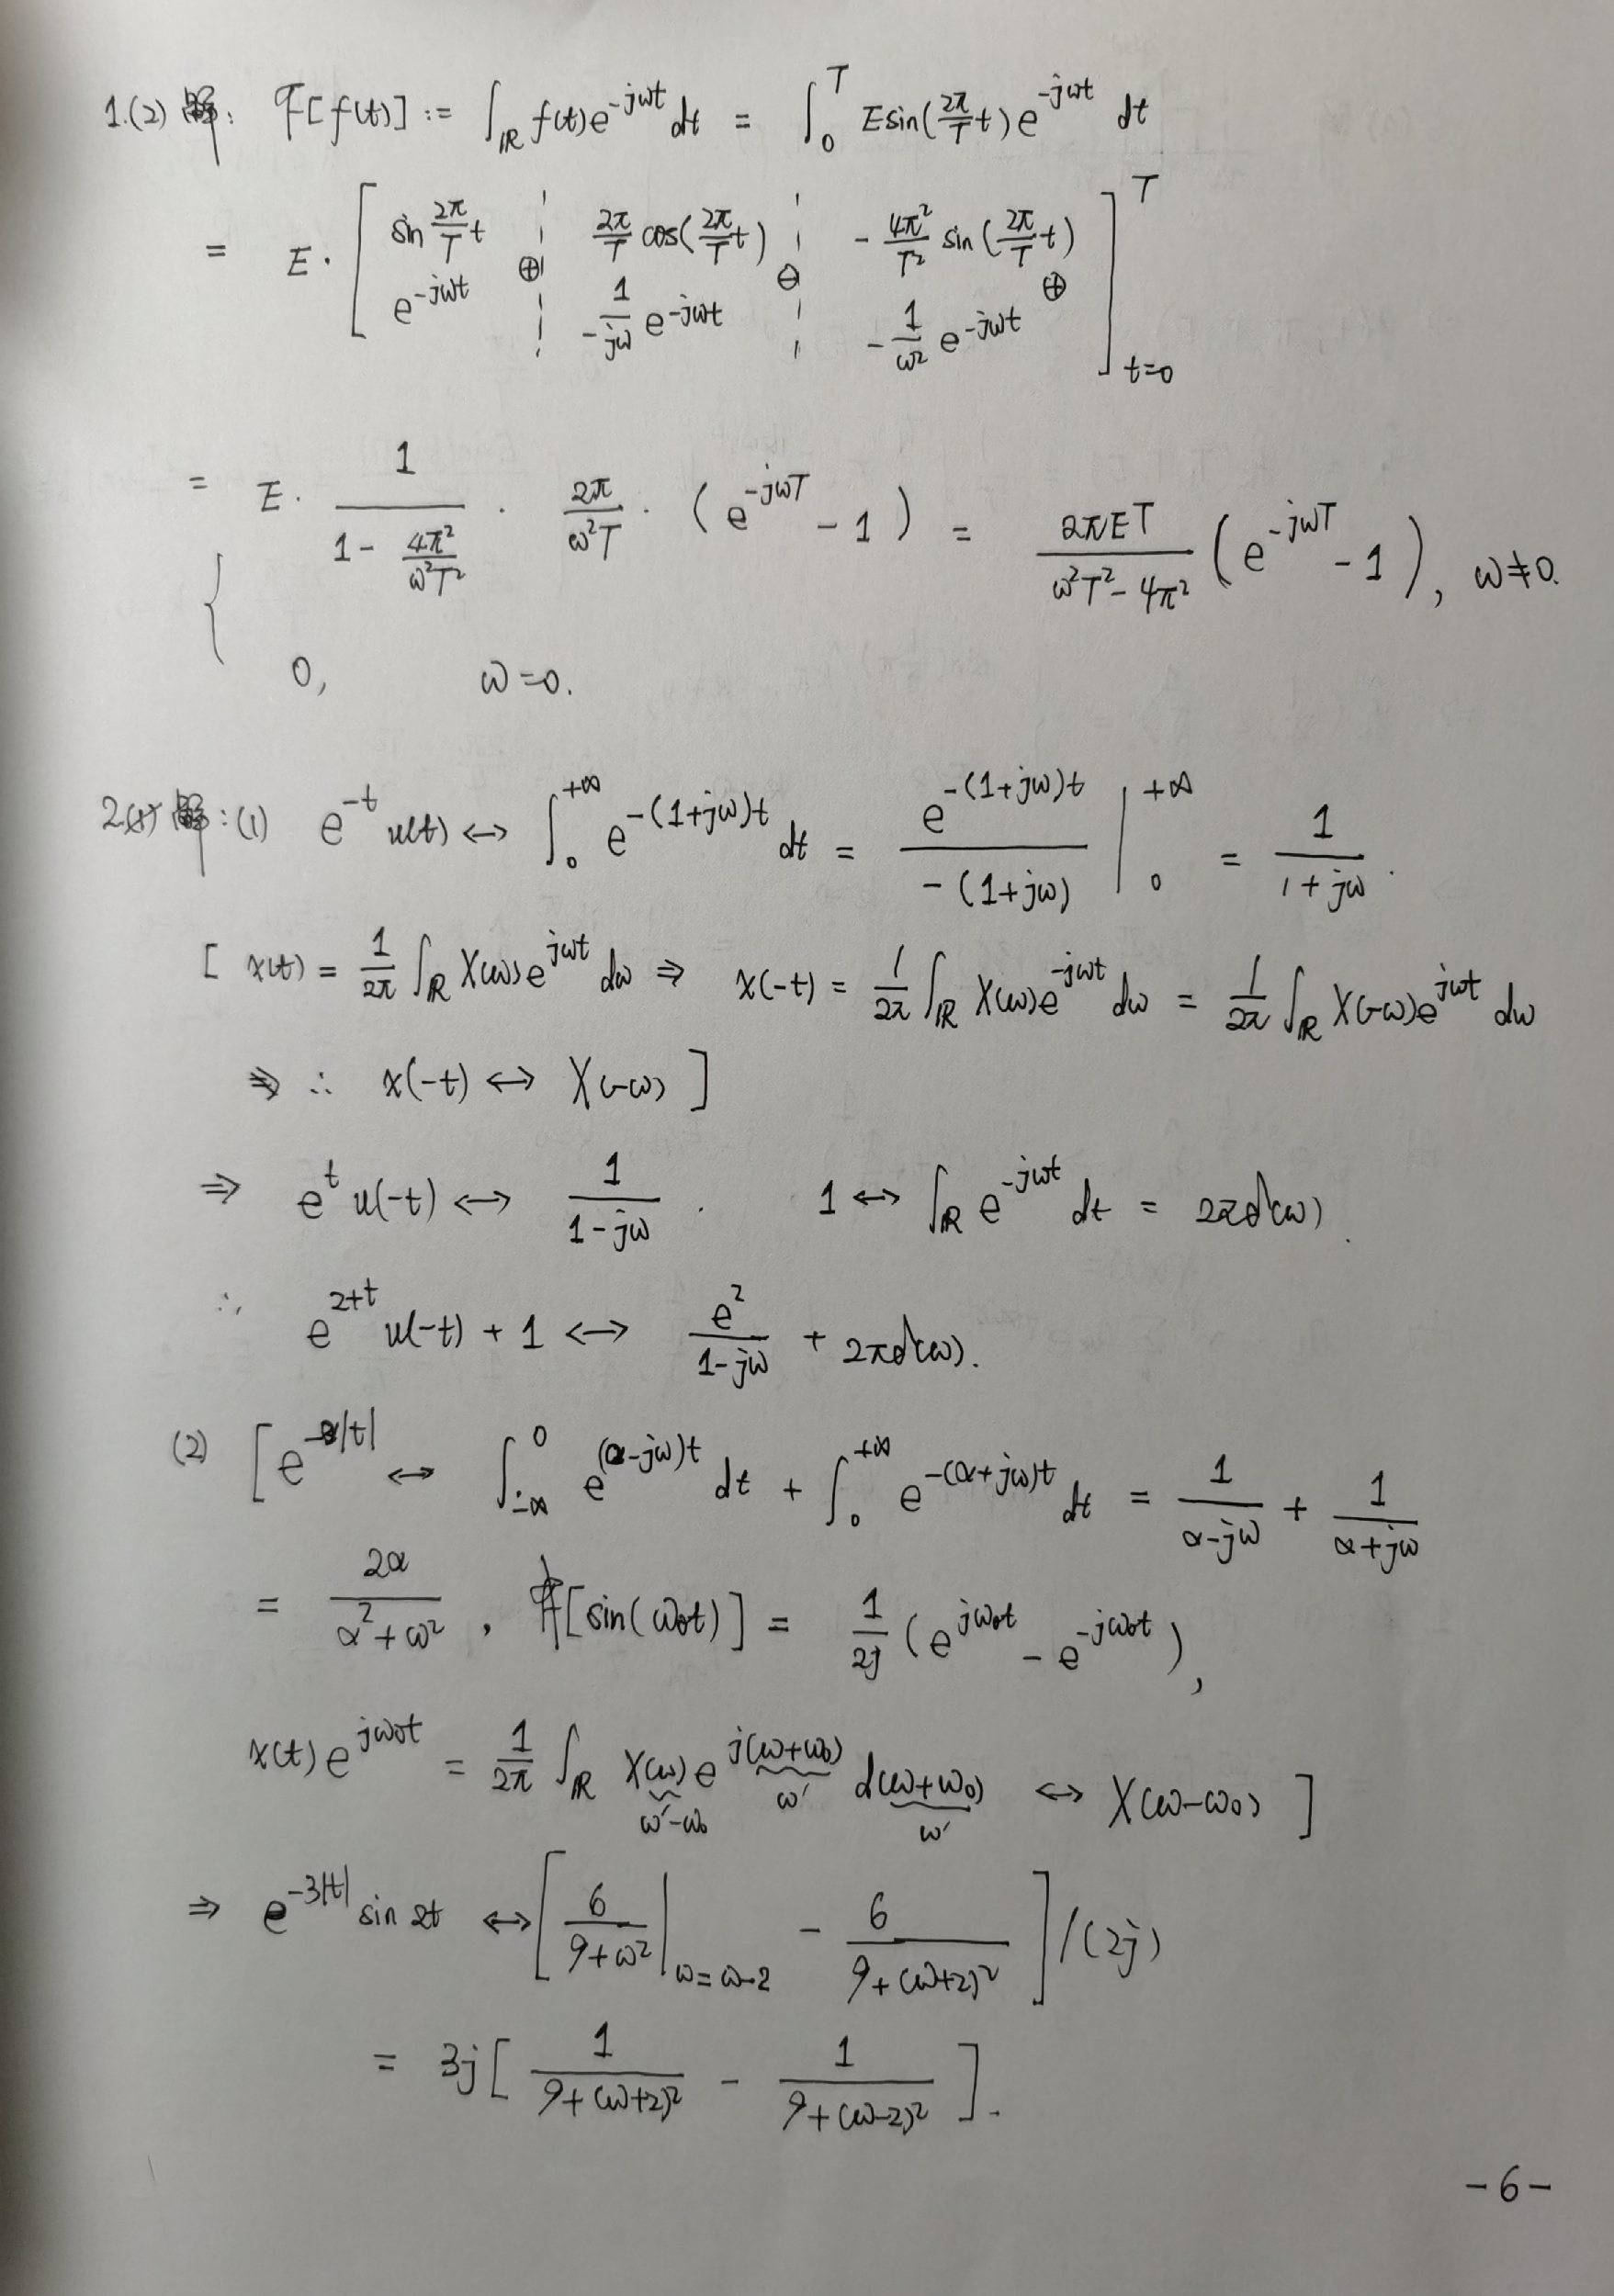 1.(2) 解: F[f(t)] := ∫_ℝ f(t)e^{-jωt} dt = ∫_0^T E sin(2π/T t) e^{-jωt} dt
= E · [ sin 2π/T t ¦ 2π/T cos(2π/T t) ¦ - 4π²/T² sin(2π/T t) ]_{t=0}^T
e^{-jωt} ⊕ 1/-jω e^{-jωt} ⊖ - 1/ω² e^{-jωt} ⊕
= { E · 1/(1 - 4π²/ω²T²) · 2π/ω²T · (e^{-jωT} - 1) = 2πET/(ω²T² - 4π²) (e^{-jωT} - 1), ω≠0.
0, ω=0.
2. 解: (1) e^{-t} u(t) ↔ ∫_0^{+∞} e^{-(1+jω)t} dt = e^{-(1+jω)t}/-(1+jω) |_0^{+∞} = 1/(1+jω).
[ x(t) = 1/2π ∫_ℝ X(ω)e^{jωt} dω ⇒ x(-t) = 1/2π ∫_ℝ X(ω)e^{-jωt} dω = 1/2π ∫_ℝ X(-ω)e^{jωt} dω
⇒ ∴ x(-t) ↔ X(-ω) ]
⇒ e^t u(-t) ↔ 1/(1-jω). 1 ↔ ∫_ℝ e^{-jωt} dt = 2πδ(ω).
∴ e^{2+t} u(-t) + 1 ↔ e²/(1-jω) + 2πδ(ω).
(2) [ e^{-α|t|} ↔ ∫_{-∞}^0 e^{(α-jω)t} dt + ∫_0^{+∞} e^{-(α+jω)t} dt = 1/(α-jω) + 1/(α+jω)
= 2α/(α²+ω²), F[sin(ω₀t)] = 1/2j (e^{jω₀t} - e^{-jω₀t}),
x(t)e^{jω₀t} = 1/2π ∫_ℝ X(ω) e^{j(ω+ω₀)} d(ω+ω₀) ↔ X(ω-ω₀) ]
ω'-ω₀ ω' ω'
⇒ e^{-3|t|} sin 2t ↔ [ 6/(9+ω²) |_{ω=ω-2} - 6/(9+(ω+2)²) ] /(2j)
= 3j [ 1/(9+(ω+2)²) - 1/(9+(ω-2)²) ].
-6-